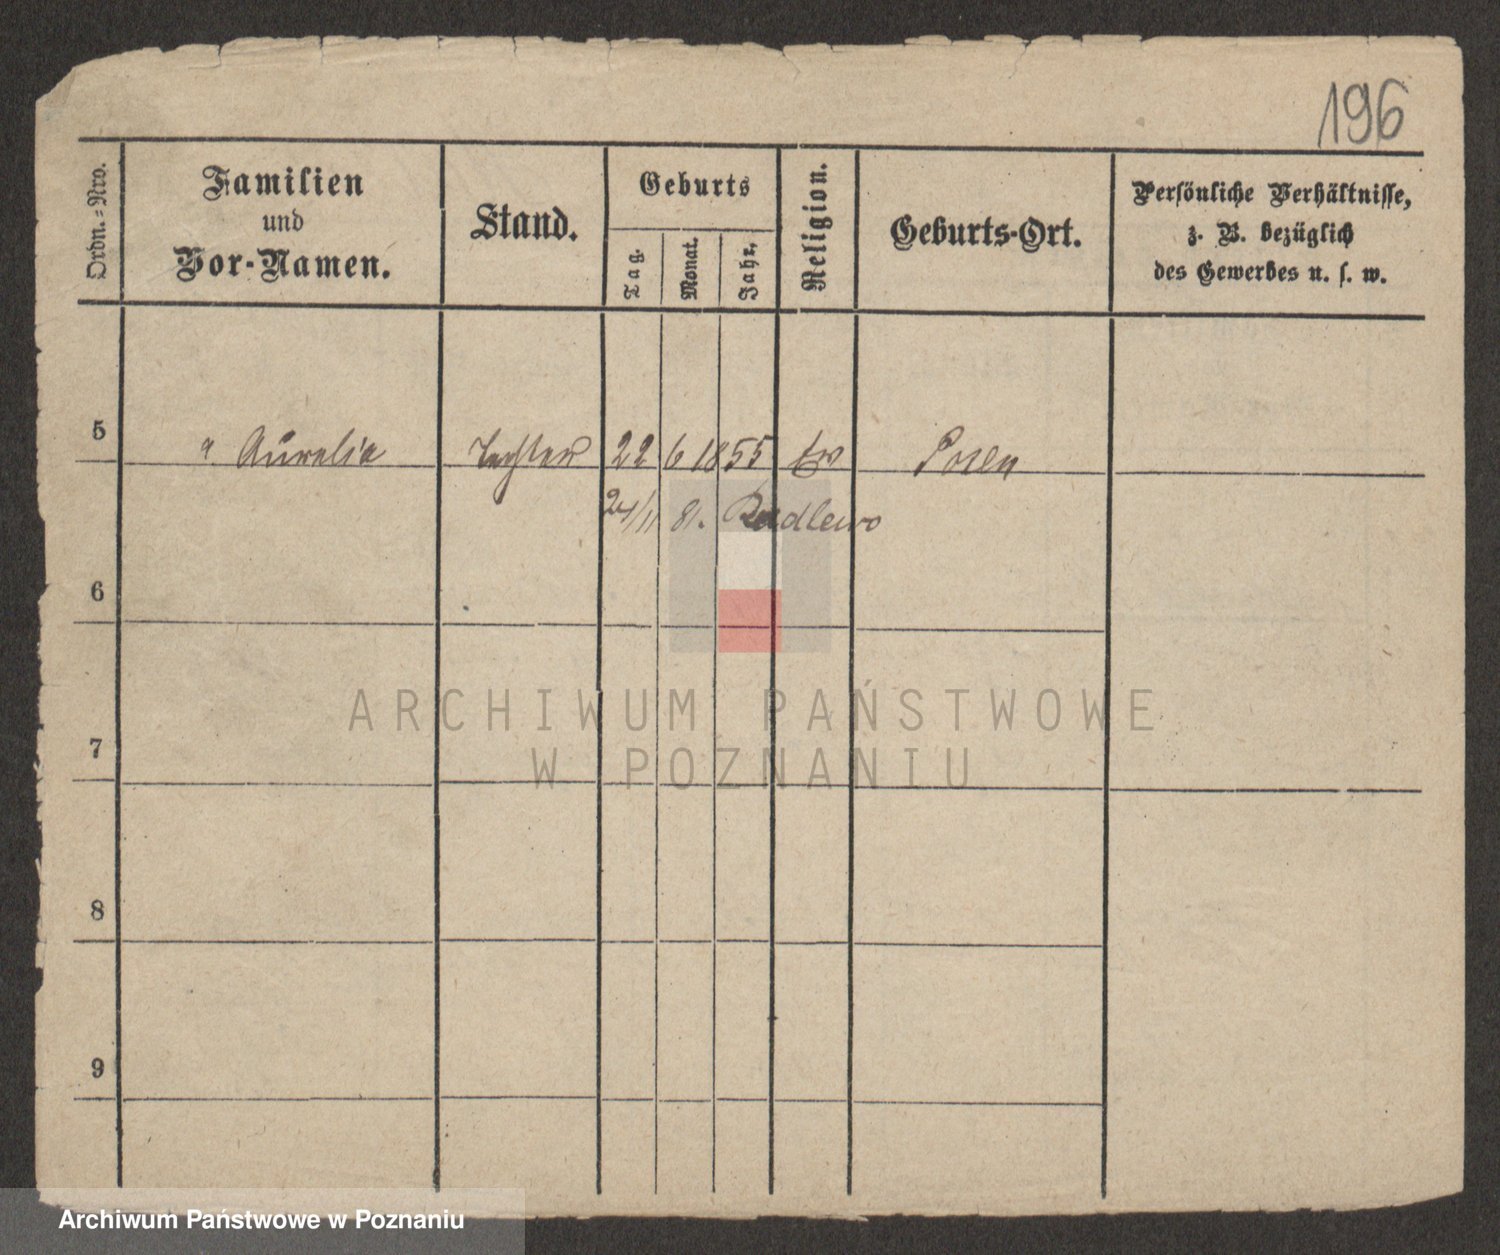 196
Ordn.=Nro.
Familien
und
Vor-Namen.
Stand.
Geburts
Tag.
Monat.
Jahr.
Religion.
Geburts-Ort.
Persönliche Verhältnisse,
z. B. bezüglich
des Gewerbes u. s. w.
5 " Aurelia Tochter 22 6 1855 ev Posen
24/11 81. Radlewo
6
7
8
9
ARCHIWUM PAŃSTWOWE
W POZNANIU
Archiwum Państwowe w Poznaniu